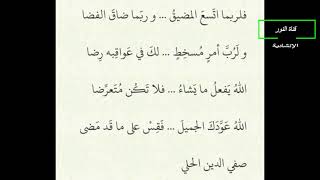 فلربما اتّسعَ المضيقُ ... و ربّما ضاقَ الفضا
و لَرُبَّ أمرٍ مُسخِطٍ ... لكَ في عَواقِبه رِضا
اللهُ يَفعلُ ما يَشاءُ ... فلا تَكُن مُتَعرِّضا
اللهُ عَوَّدَكَ الجميلَ ... فَقِسْ على ما قَد مَضى
صفي الدين الحلي
قناة النور
الإنشادية